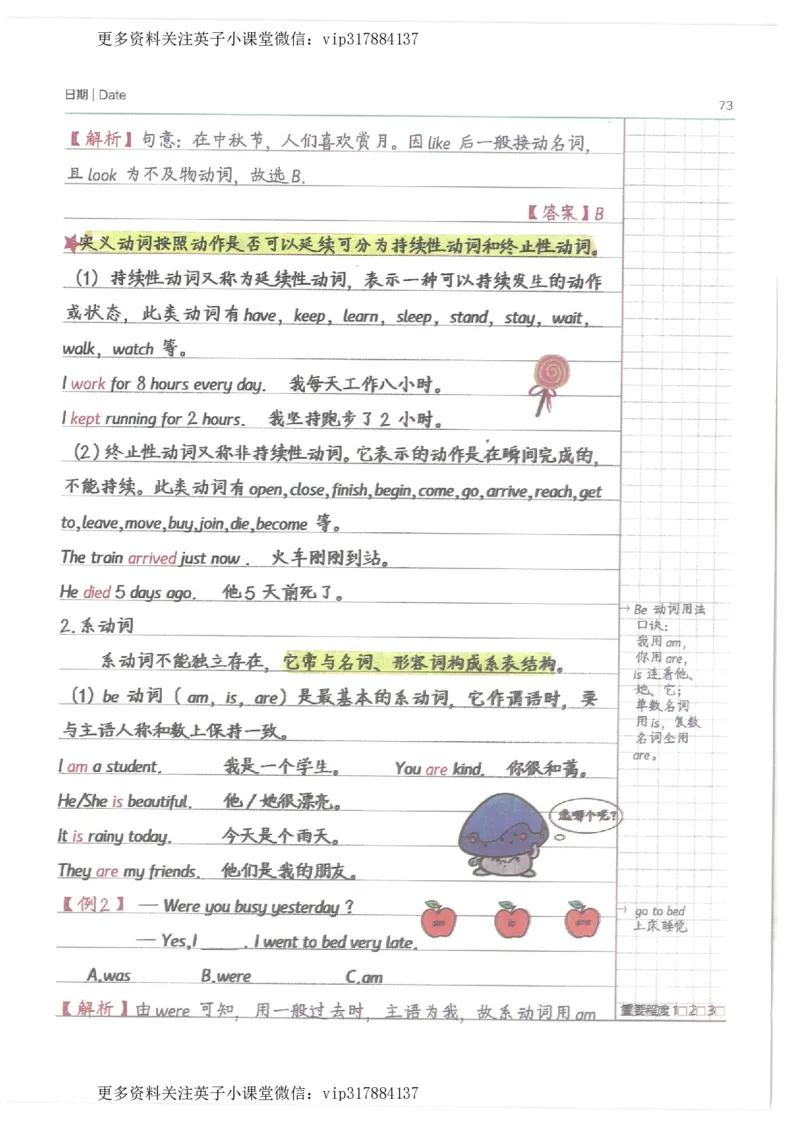 更多资料关注英子小课堂微信：vip317884137
日期 | Date
73
【解析】句意：在中秋节，人们喜欢赏月。因 like 后一般接动名词，
且 look 为不及物动词，故选 B.
【答案】B
★实义动词按照动作是否可以延续可分为持续性动词和终止性动词。
(1) 持续性动词又称为延续性动词，表示一种可以持续发生的动作
或状态，此类动词有 have，keep，learn，sleep，stand，stay，wait，
walk，watch 等。
I work for 8 hours every day. 我每天工作八小时。
I kept running for 2 hours. 我坚持跑步了 2 小时。
(2) 终止性动词又称非持续性动词。它表示的动作是在瞬间完成的，
不能持续。此类动词有 open,close,finish,begin,come,go,arrive,reach,get
to,leave,move,buy,join,die,become 等。
The train arrived just now . 火车刚刚到站。
He died 5 days ago. 他 5 天前死了。
2.系动词
系动词不能独立存在，它常与名词、形容词构成系表结构。
(1) be 动词 ( am，is，are) 是最基本的系动词，它作谓语时，要
与主语人称和数上保持一致。
I am a student. 我是一个学生。 You are kind. 你很和蔼。
He/She is beautiful. 他 / 她很漂亮。
It is rainy today. 今天是个雨天。
They are my friends. 他们是我的朋友。
选哪个呢？
【例2】 — Were you busy yesterday ?
— Yes,I ____ . I went to bed very late.
am
is
are
A.was B.were C.am
【解析】由 were 可知，用一般过去时，主语为我，故系动词用 am
→ Be 动词用法
口诀：
我用 am，
你用 are，
is 连着他、
她、它；
单数名词
用 is，复数
名词全用
are。
→ go to bed
上床睡觉
重要程度 1□ 2□ 3□
更多资料关注英子小课堂微信：vip317884137